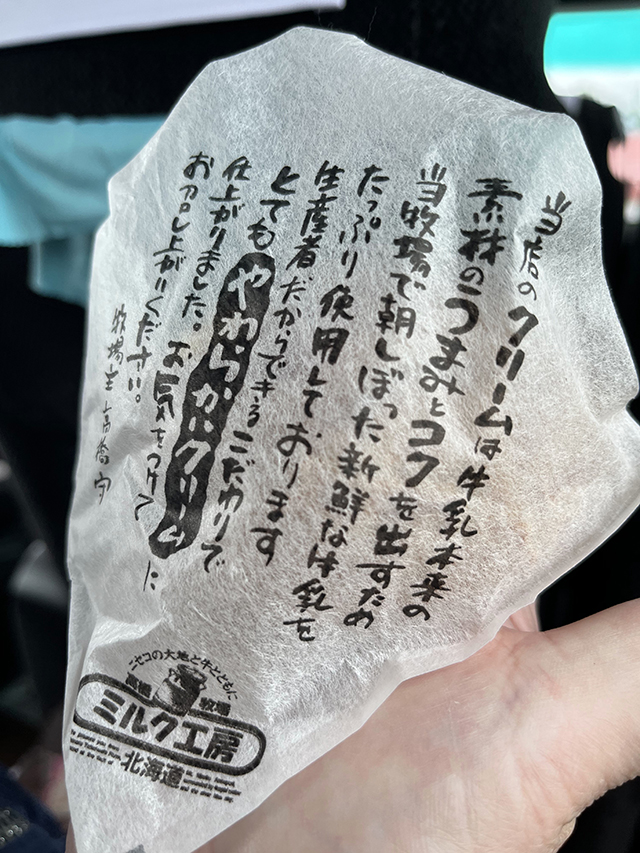 当店のクリームは牛乳本来の
素材のうまみとコクを出すため
当牧場で朝しぼった新鮮な牛乳を
たっぷり使用しております
生産者だからできるこだわりで
とてもやわらかクリームに
仕上がりました。お気をつけて
お召し上がりください。
牧場主 高橋守
ニセコの大地と牛とともに
高橋 牧場
ミルク工房
北海道